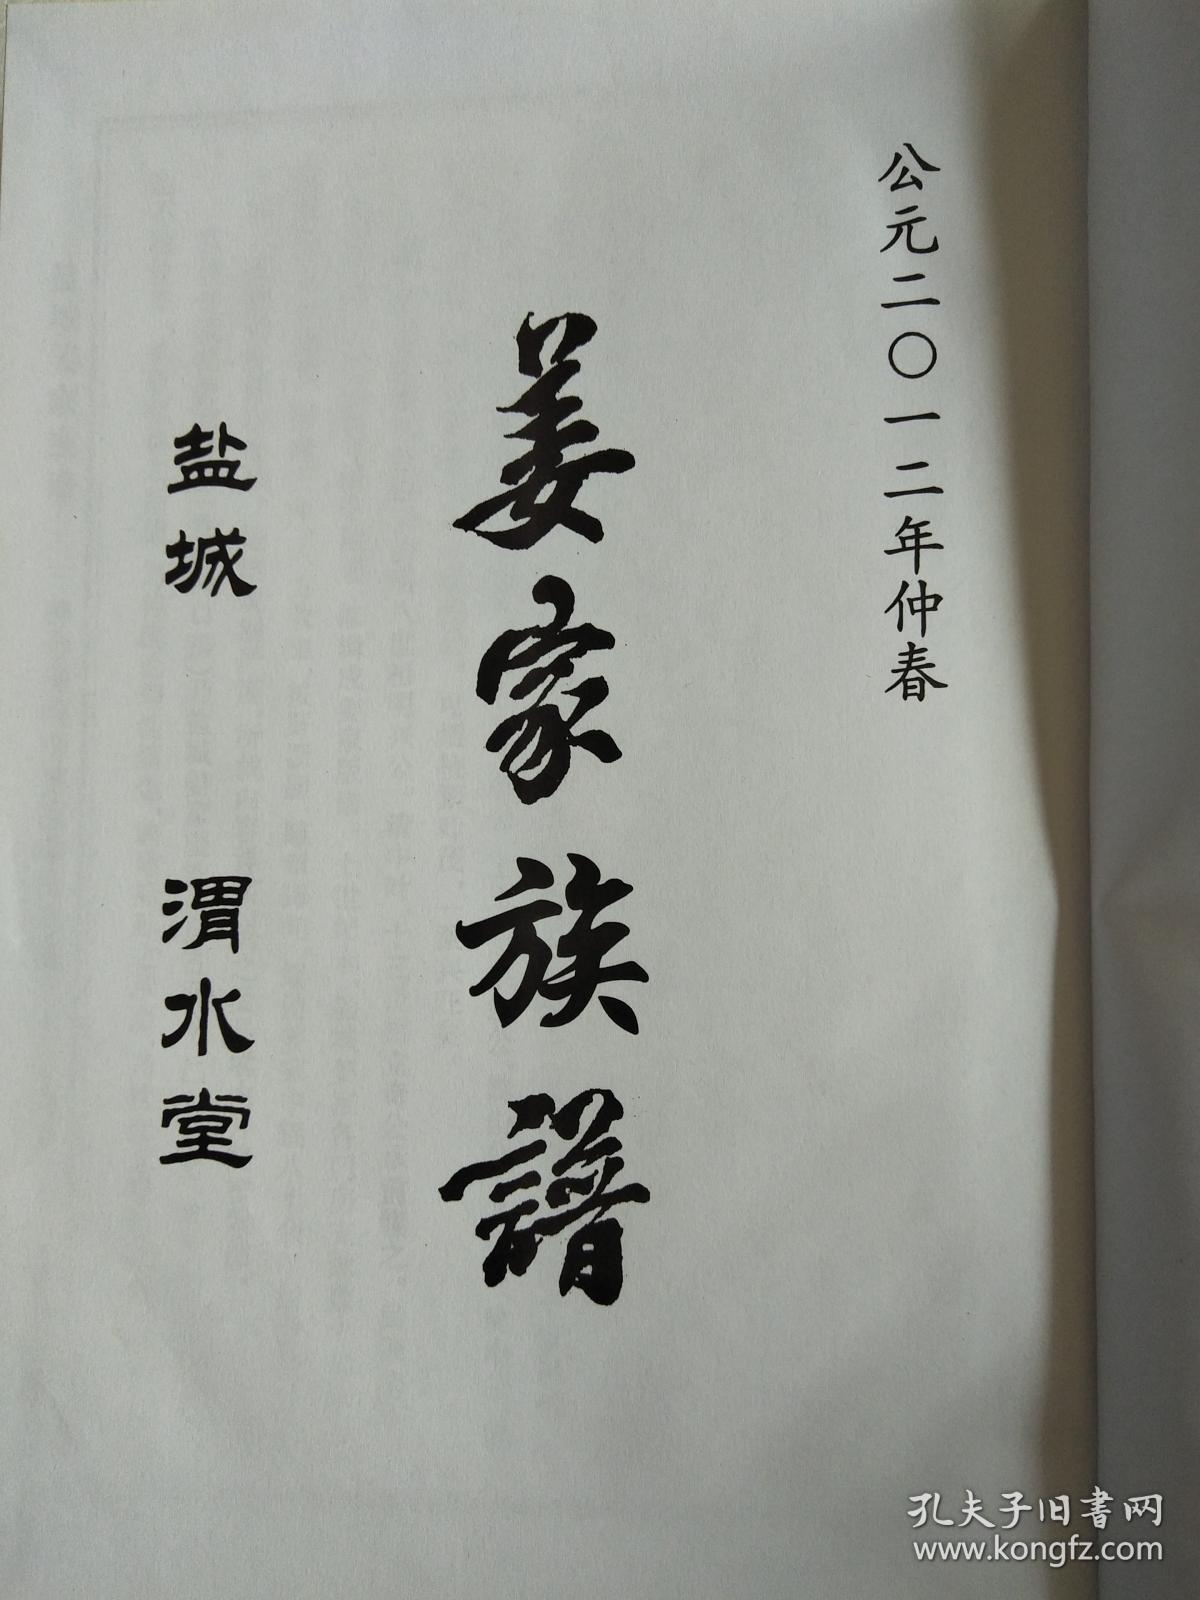 公元二〇一二年仲春
姜家族譜
盐城 渭水堂
孔夫子旧書网
www.kongfz.com